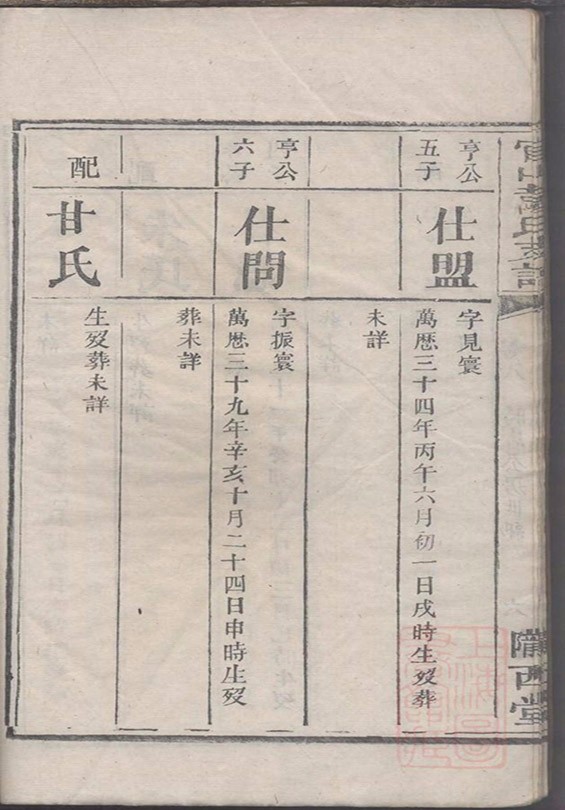 亨公
五子
仕盟
字見寰
萬厯三十四年丙午六月初一日戌時生歿葬
未詳
亨公
六子
仕問
字振寰
萬厯三十九年辛亥十月二十四日申時生歿
葬未詳
配
甘氏
生歿葬未詳
六
隴西堂